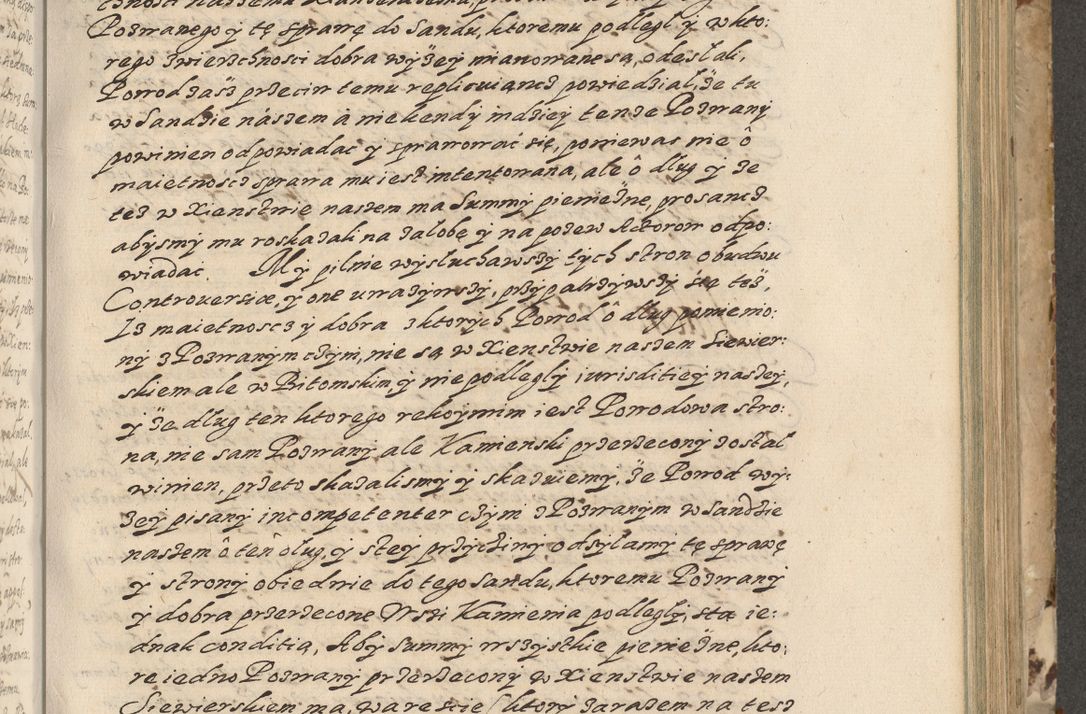 Pozwanego y tę sprawę do Sandu, ktoremu podległ y w kto:
rego zwierzchnosci dobra wyżey mianowane są, odesłali,
Powod zasz przeciw temu replicuiancz powiedział, że tu
w Sandzie nászem á nie kendy indziey tenże Pozwany
powinien odpowiadać y sprawować się, poniewas nie ó
maietnoscz sprawa mu iest intentowana, ale ó dług y że
tesz w Xienstwie naszem ma Summy pienieżne, proszancz
abysmy mu roskazali na żałobę y na pozew Actorow odpo:
wiadać. My pilnie wysłuchawszy tych stron obudwu
Controuersiæ, y one uważywszy, przypatrzywszy się też,
Iż maietnoscz y dobra z ktorych Powod ó dług pomienio:
ny z Pozwanym czyni, nie są w Xienstwie naszem Siewier:
skiem ale w Bitomskim y nie podległy iurisditiey naszey,
y że dług ten ktorego rekoymim iest Powodowa stro:
na, nie sam Pozwany, ale Kamienski przerzeczony został
winien, przeto skazalismy y skazuiemy, że Powod wy:
zey pisany incompetenter czyni z Pozwanym w Sandzie
naszem ó ten dług, y stey przyczyny odsyłamy tę sprawę
y strony obiedwie do tego Sandu, ktoremu Pozwany
y dobra przerzeczone Wszi Kamienia podległy, sta ie:
dnak conditią, Aby Summy wszystkie pienieżne, kto:
re iedno Pozwany przerzeczony w Xienstwie naszem
Siewierskiem ma, w areście ktory zarazem na tesz